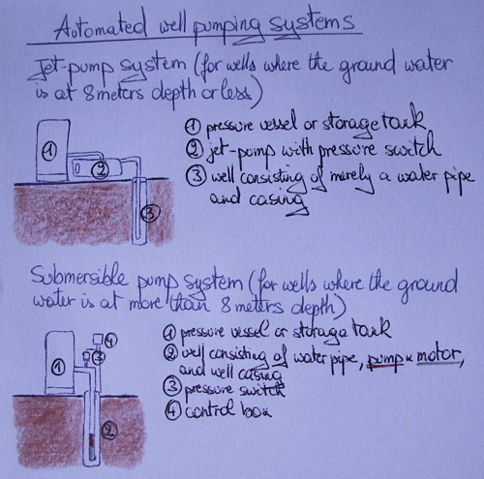 Automated well pumping systems
Jet-pump system (for wells where the ground water
is at 8 meters depth or less)
① pressure vessel or storage tank
② jet-pump with pressure switch
③ well consisting of merely a water pipe
and casing
①
②
③
Submersible pump system (for wells where the ground
water is at more than 8 meters depth)
① pressure vessel or storage tank
② well consisting of water pipe, pump & motor,
and well casing
③ pressure switch
④ control box
①
④
③
②